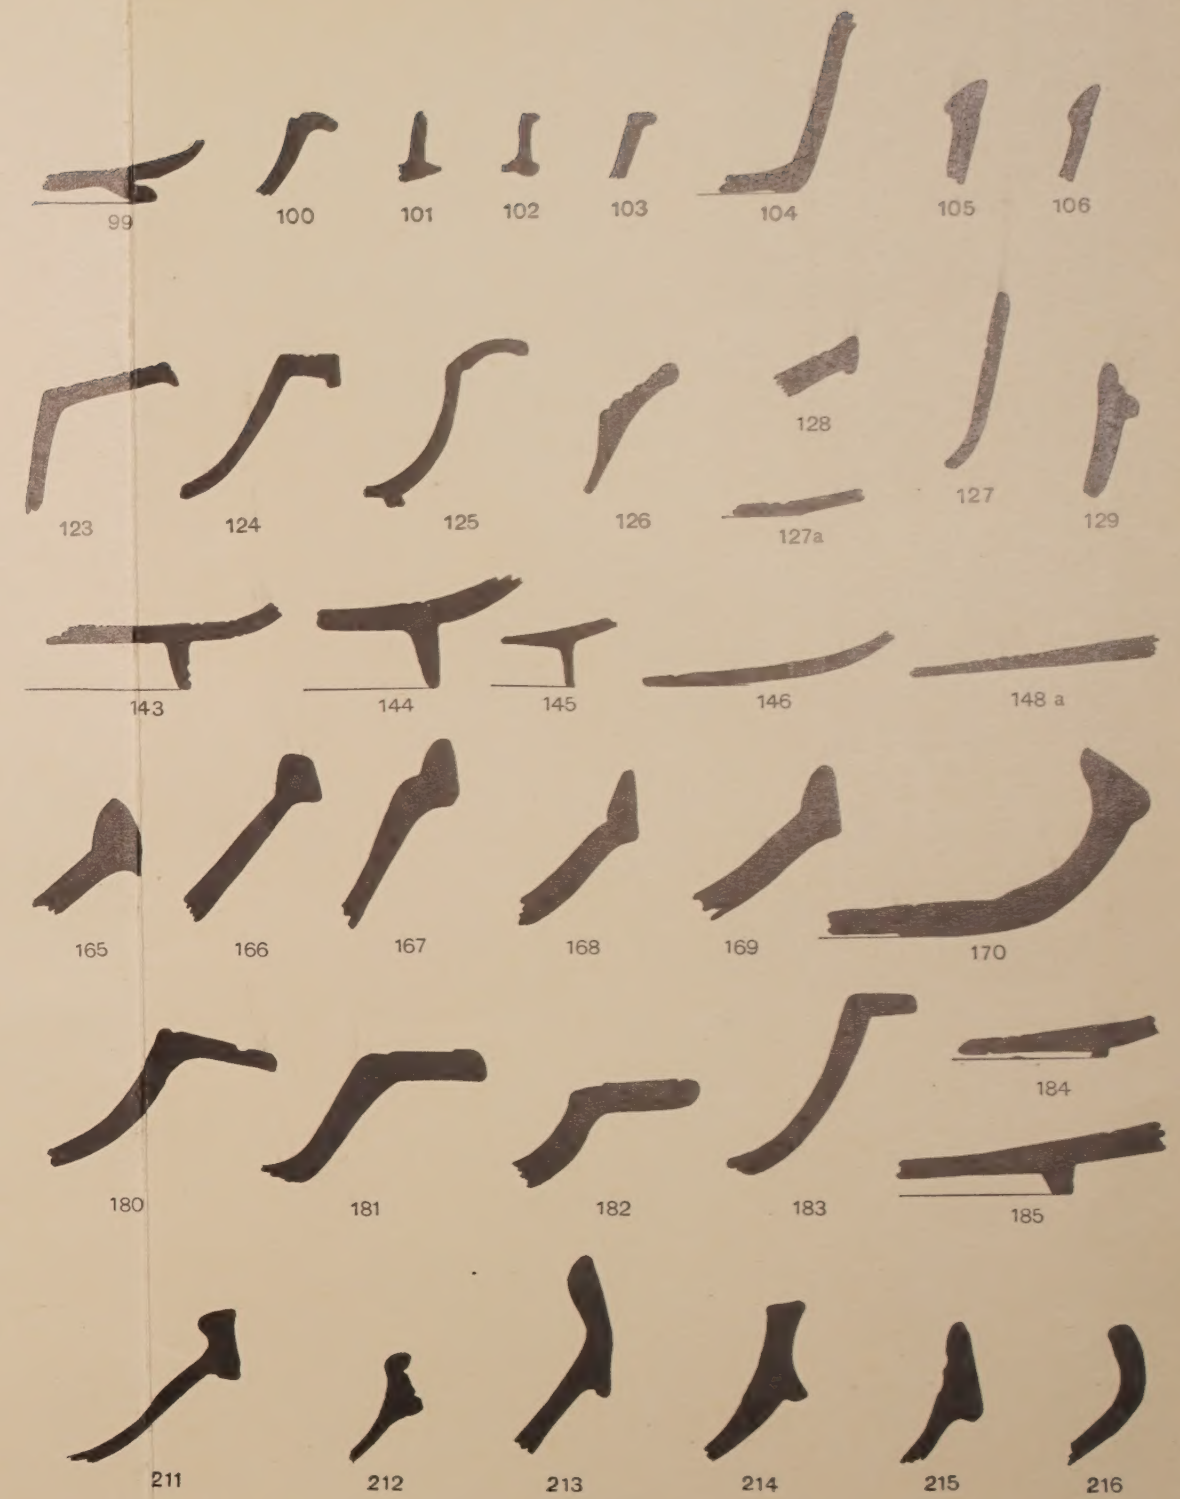 99 100 101 102 103 104 105 106
128
123 124 125 126 127a 127 129
143 144 145 146 148 a
165 166 167 168 169 170
184
180 181 182 183 185
211 212 213 214 215 216